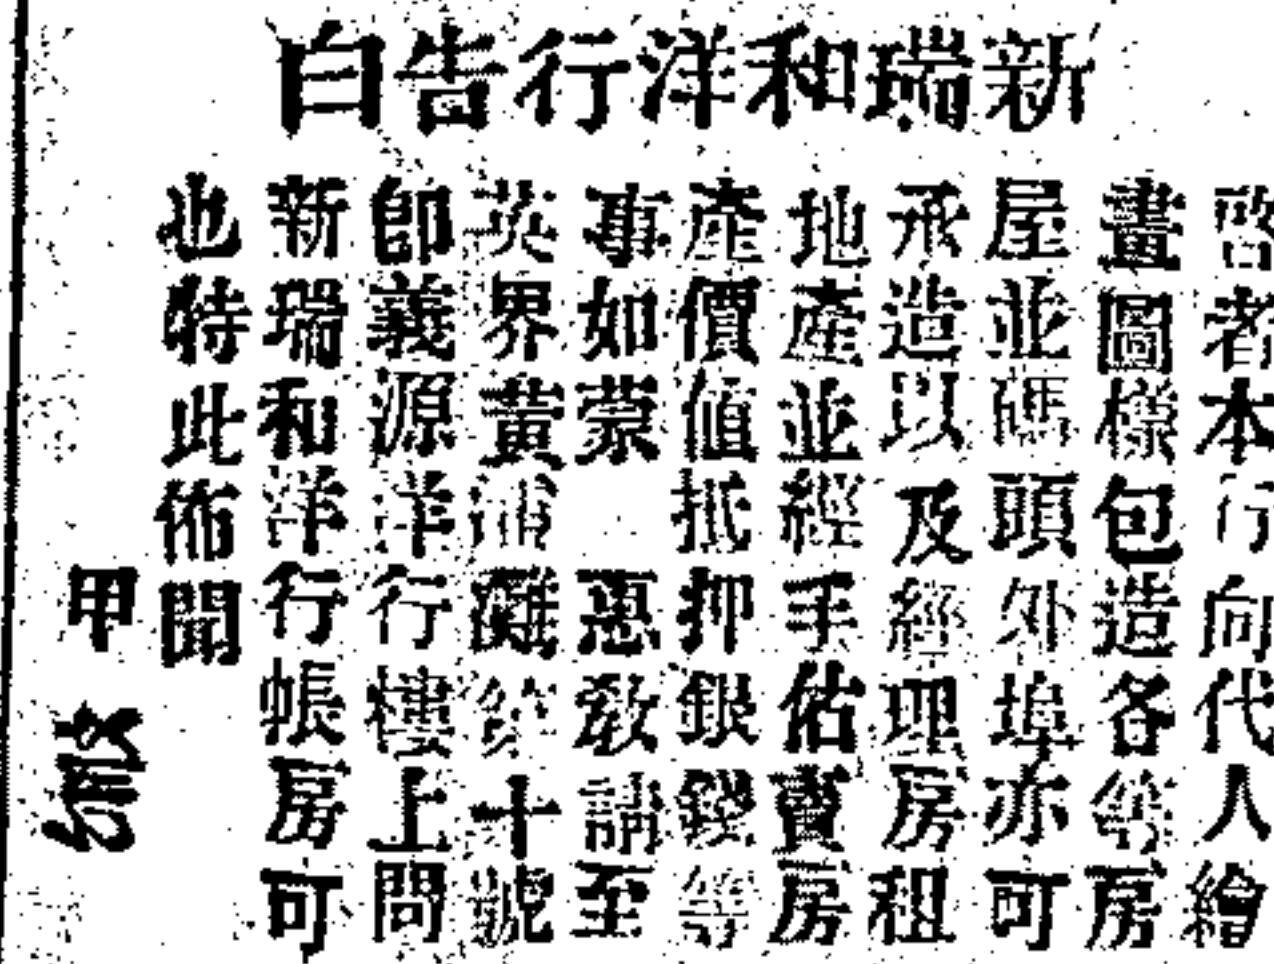 新瑞和洋行告白
啓者本行向代人繪
畫圖樣包造各等房
屋並碼頭外埠亦可
承造以及經理房租
地產並經手估賣房
產價值抵押銀錢等
事如蒙 惠教請至
英界黃浦灘第十號
卽義源洋行樓上問
新瑞和洋行帳房可
也特此佈聞
甲